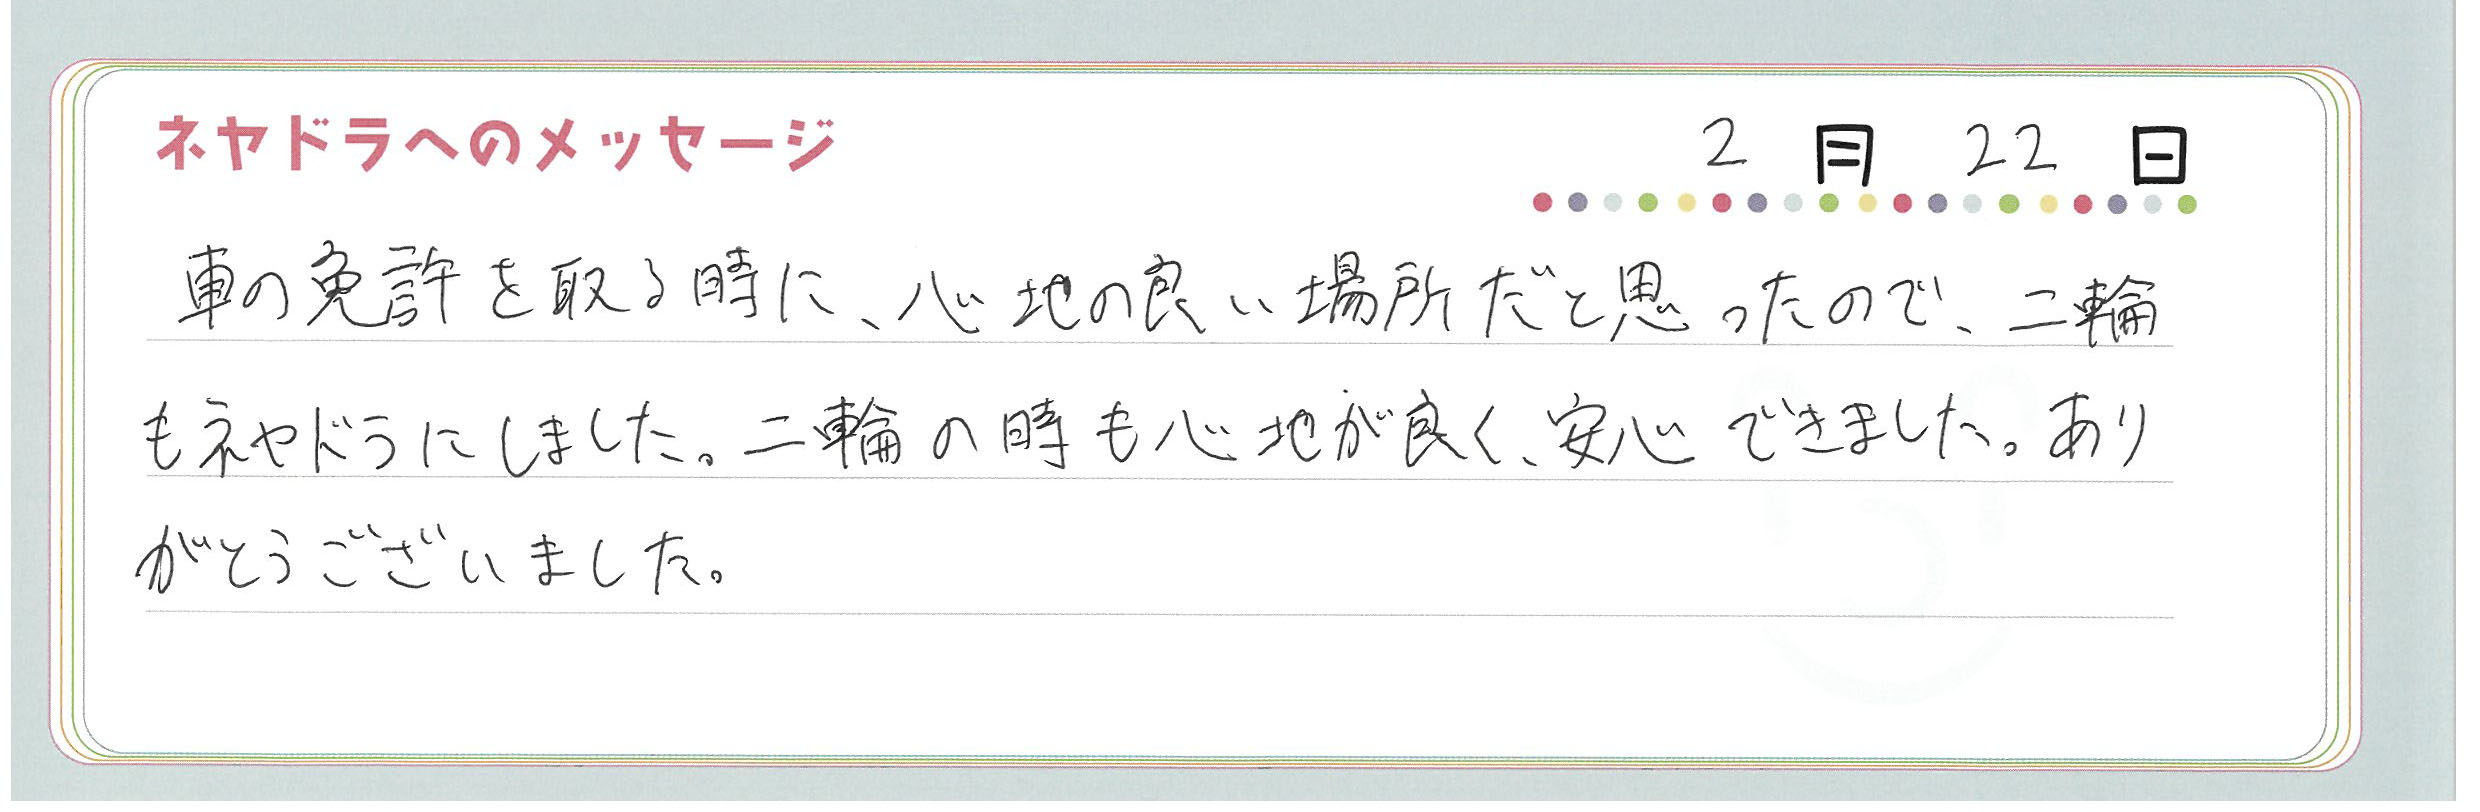 ネヤドラへのメッセージ
2月22日
車の免許を取る時に、心地の良い場所だと思ったので、二輪
もネヤドラにしました。二輪の時も心地が良く、安心できました。あり
がとうございました。